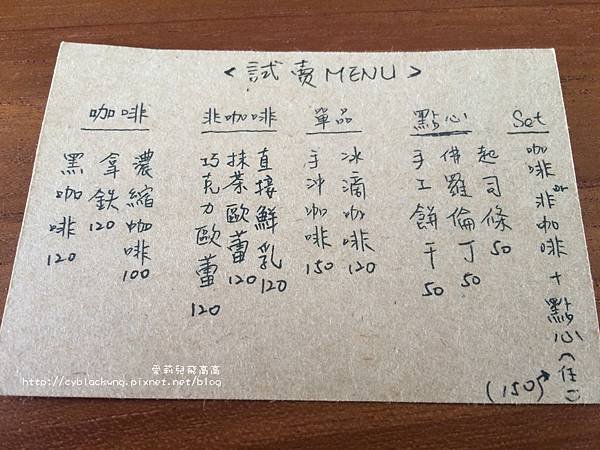 <試賣MENU>
咖啡
黑咖啡 120
拿鉄 120
濃縮咖啡 100
非咖啡
巧克力歐蕾 120
抹茶歐蕾 120
直接鮮乳 120
單品
手沖咖啡 150
冰滴咖啡 120
點心
手工餅干 50
佛羅倫丁 50
起司條 50
Set
咖啡or非咖啡+點心(任一)
(150)
愛莉兒飛高高
http://cyblackwng.pixnet.net/blog